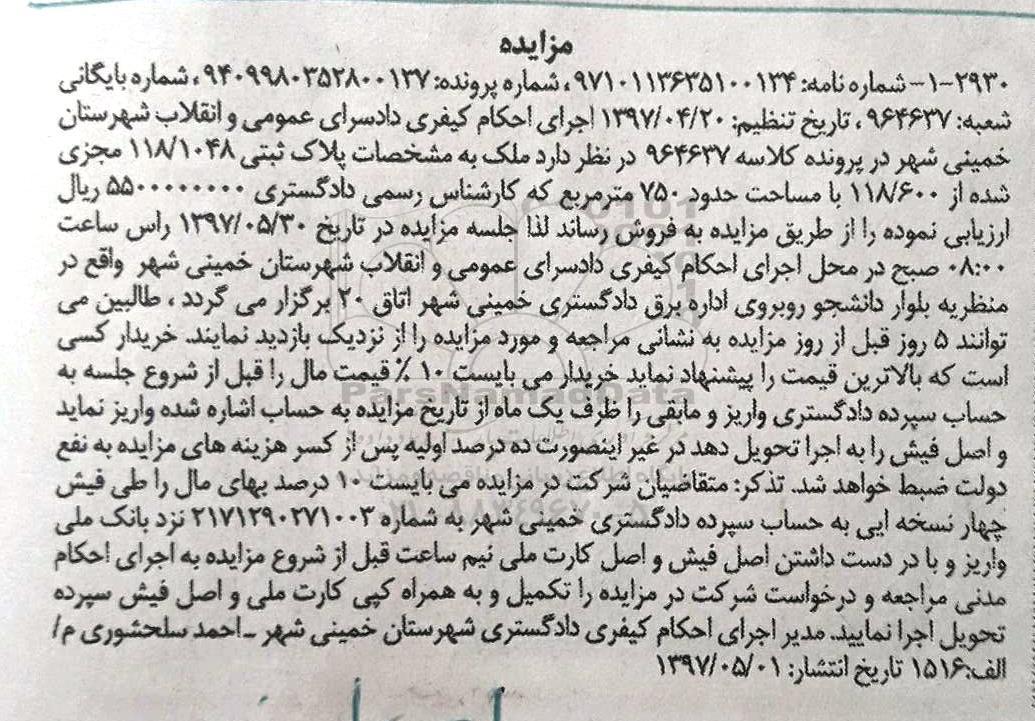 مزایده
۱-۲۹۳۰- شماره نامه: ۹۷۱۰۱۱۳۶۳۵۱۰۰۱۳۴، شماره پرونده: ۹۴۰۹۹۸۰۳۵۲۸۰۰۱۳۷، شماره بایگانی
شعبه: ۹۶۴۶۳۷ ، تاریخ تنظیم: ۱۳۹۷/۰۴/۲۰ اجرای احکام کیفری دادسرای عمومی و انقلاب شهرستان
خمینی شهر در پرونده کلاسه ۹۶۴۶۳۷ در نظر دارد ملک به مشخصات پلاک ثبتی ۱۱۸/۱۰۴۸ مجزی
شده از ۱۱۸/۶۰۰ با مساحت حدود ۷۵۰ مترمربع که کارشناس رسمی دادگستری ۵۵۰۰۰۰۰۰۰۰۰ ریال
ارزیابی نموده را از طریق مزایده به فروش رساند لذا جلسه مزایده در تاریخ ۱۳۹۷/۰۵/۳۰ راس ساعت
۰۸:۰۰ صبح در محل اجرای احکام کیفری دادسرای عمومی و انقلاب شهرستان خمینی شهر واقع در
منظریه بلوار دانشجو روبروی اداره برق دادگستری خمینی شهر اتاق ۲۰ برگزار می گردد ، طالبین می
توانند ۵ روز قبل از روز مزایده به نشانی مراجعه و مورد مزایده را از نزدیک بازدید نمایند. خریدار کسی
است که بالاترین قیمت را پیشنهاد نماید خریدار می بایست ۱۰ ٪ قیمت مال را قبل از شروع جلسه به
حساب سپرده دادگستری واریز و مابقی را ظرف یک ماه از تاریخ مزایده به حساب اشاره شده واریز نماید
و اصل فیش را به اجرا تحویل دهد در غیر اینصورت ده درصد اولیه پس از کسر هزینه های مزایده به نفع
دولت ضبط خواهد شد. تذکر: متقاضیان شرکت در مزایده می بایست ۱۰ درصد بهای مال را طی فیش
چهار نسخه ایی به حساب سپرده دادگستری خمینی شهر به شماره ۲۱۷۱۲۹۰۲۷۱۰۰۳ نزد بانک ملی
واریز و با در دست داشتن اصل فیش و اصل کارت ملی نیم ساعت قبل از شروع مزایده به اجرای احکام
مدنی مراجعه و درخواست شرکت در مزایده را تکمیل و به همراه کپی کارت ملی و اصل فیش سپرده
تحویل اجرا نمایید. مدیر اجرای احکام کیفری دادگستری شهرستان خمینی شهر ـ احمد سلحشوری م/
الف:۱۵۱۶ تاریخ انتشار: ۱۳۹۷/۰۵/۰۱
ParsNamadData